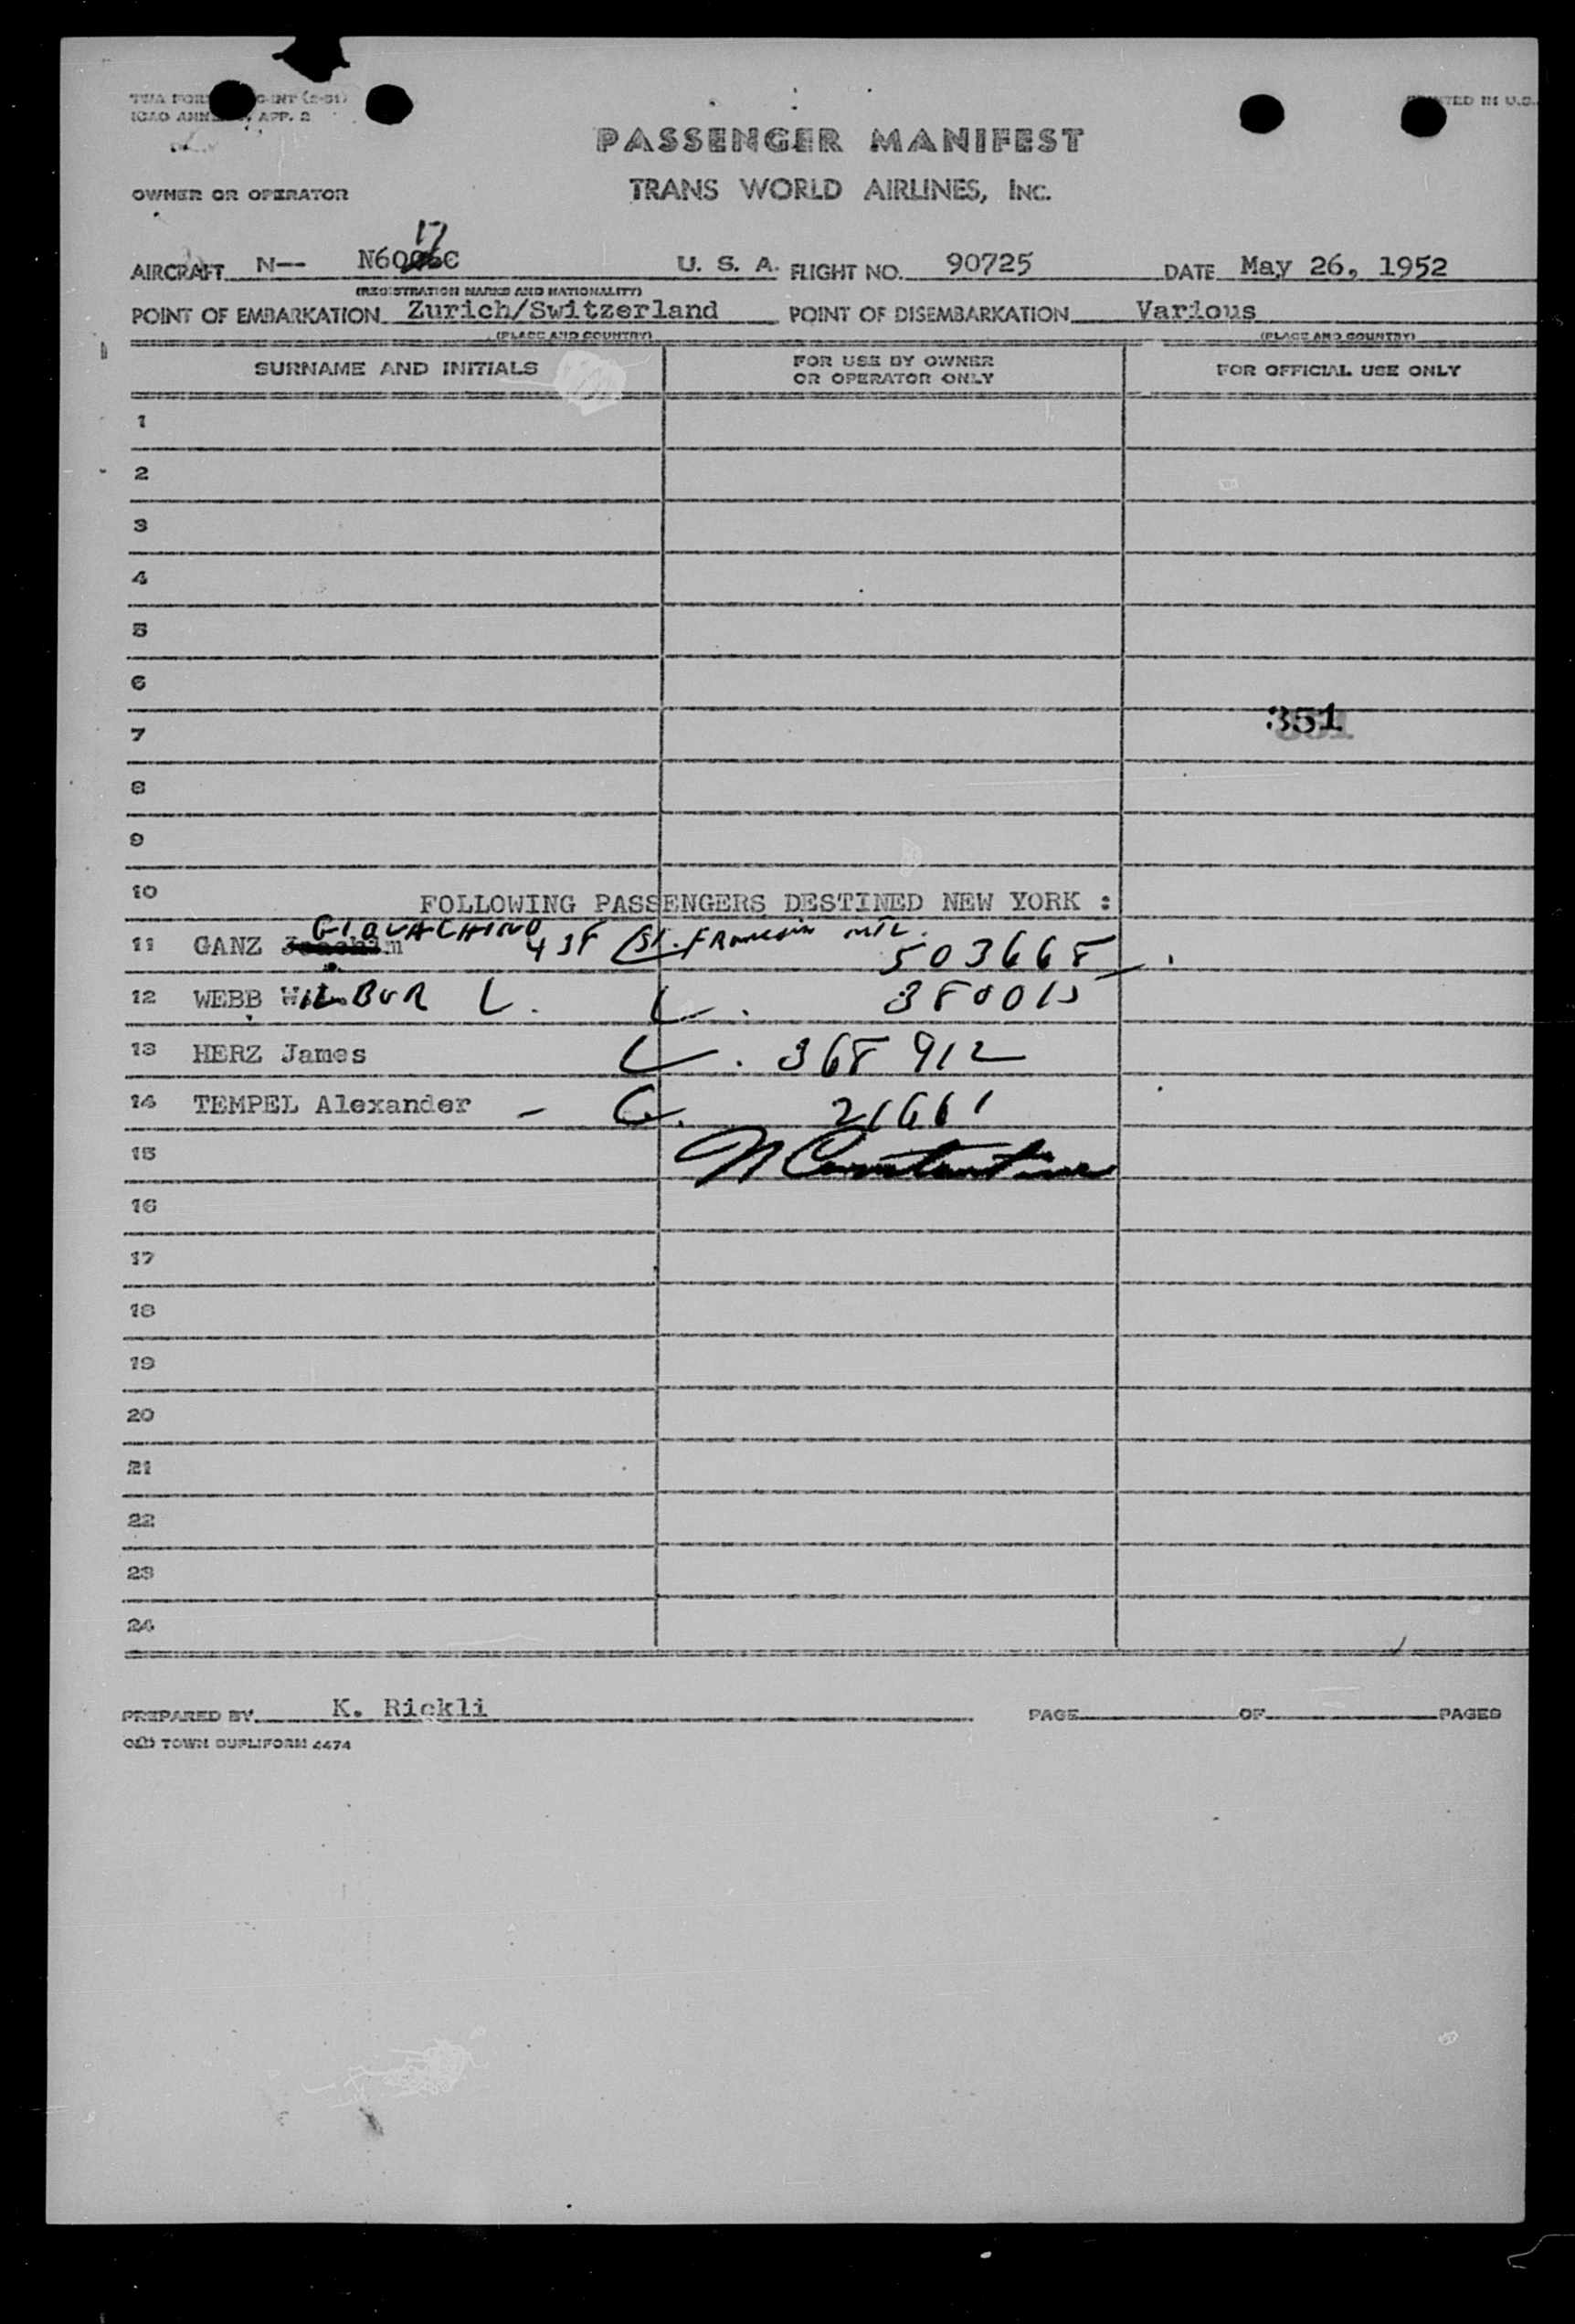 TWA FORM INT (2-51)
ICAO ANNEX 9, APP. 2
PRINTED IN U.S.
PASSENGER MANIFEST
OWNER OR OPERATOR
TRANS WORLD AIRLINES, INC.
17
AIRCRAFT N-- N6006C U. S. A. FLIGHT NO. 90725 DATE May 26, 1952
(REGISTRATION MARKS AND NATIONALITY)
POINT OF EMBARKATION Zurich/Switzerland POINT OF DISEMBARKATION Various
(PLACE AND COUNTRY) (PLACE AND COUNTRY)
SURNAME AND INITIALS FOR USE BY OWNER OR OPERATOR ONLY FOR OFFICIAL USE ONLY
1
2
3
4
5
6
351
7
8
9
10 FOLLOWING PASSENGERS DESTINED NEW YORK :
GIOVACHINO
11 GANZ Joachim 438 St. 503668
12 WEBB WILBUR L. L. 380015
13 HERZ James L. 368912
14 TEMPEL Alexander - G. 21661
15 N Constantine
16
17
18
19
20
21
22
23
24
PREPARED BY K. Rickli PAGE OF PAGES
OLD TOWN DUPLIFORM 4474